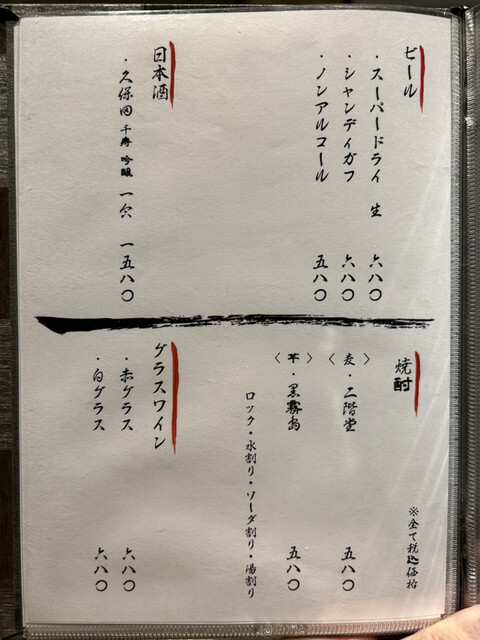 ビール
・スーパードライ 生 六八〇
・シャンディガフ 六八〇
・ノンアルコール 五八〇
日本酒
・久保田 千寿 吟醸 一合 一五八〇
焼酎
〈麦〉・二階堂 五八〇
〈芋〉・黒霧島 五八〇
ロック・水割り・ソーダ割り・湯割り
※全て税込価格
グラスワイン
・赤グラス 六八〇
・白グラス 六八〇